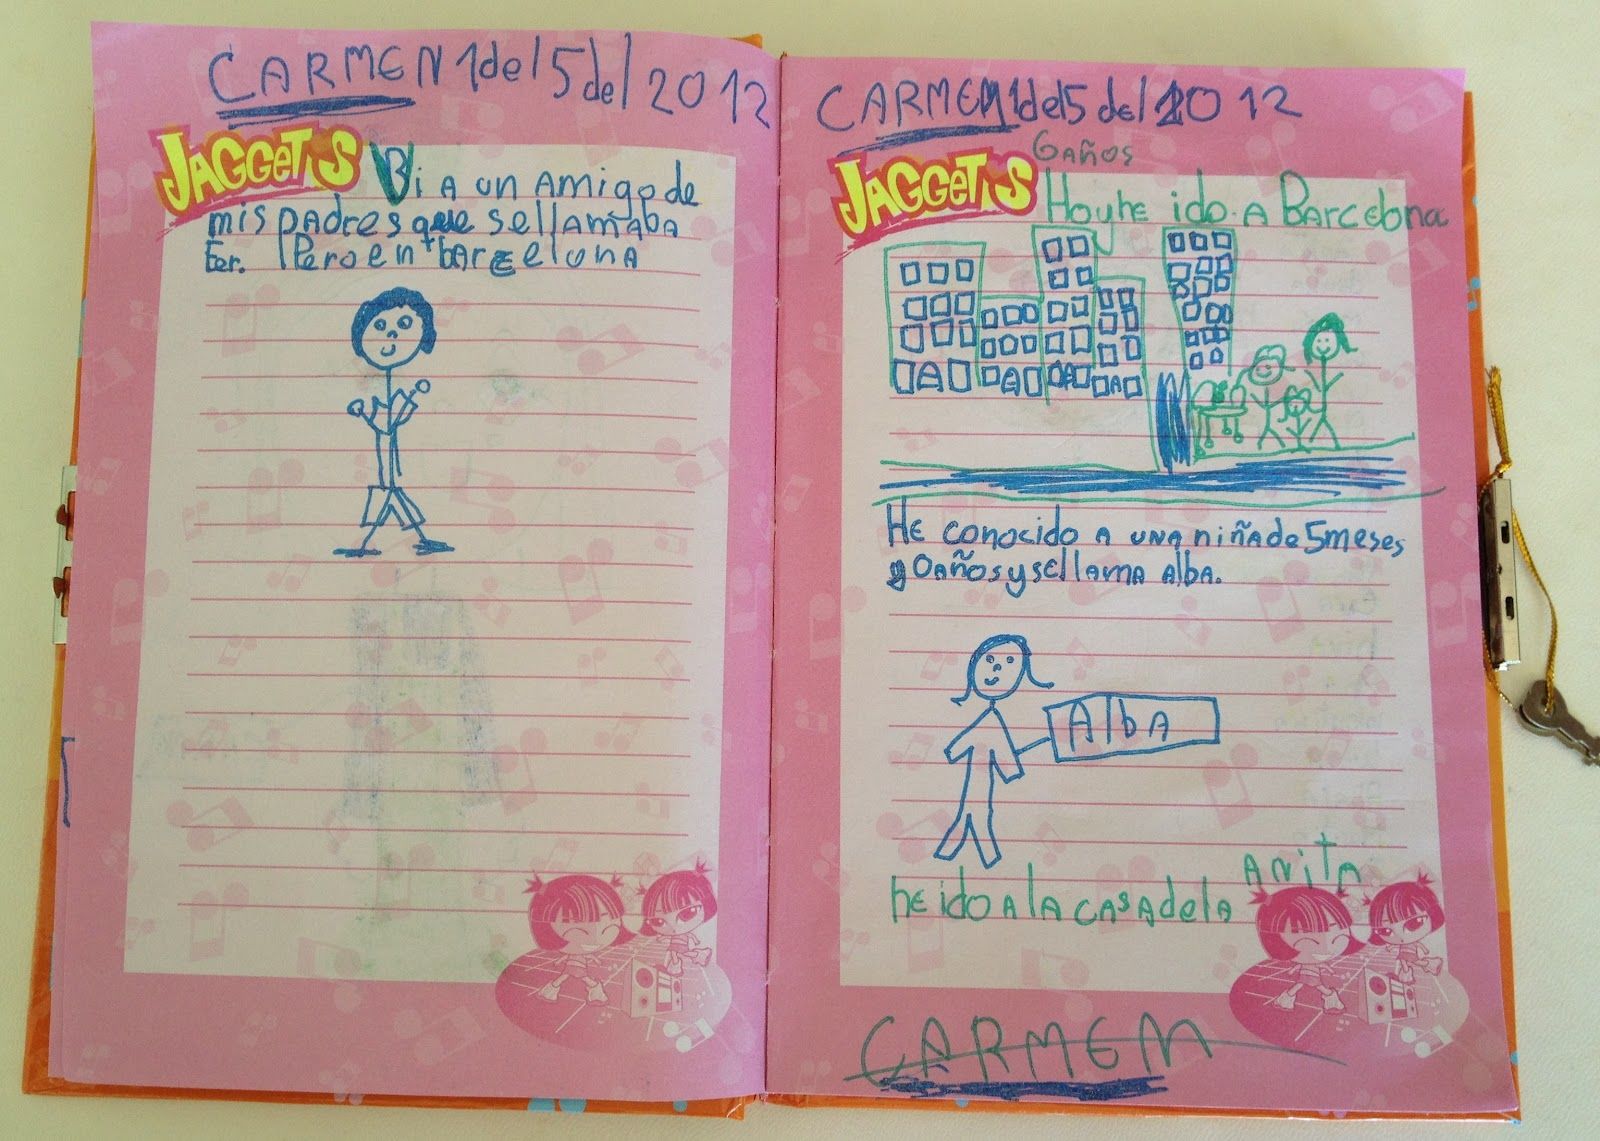 CARMEN 1 del 5 del 2012
JAGGETS
Vi A un Amigo de
mis padres que se llamaba
Fer. Pero en barcelona
CARMEN 1 del 5 del 2012
6 años
JAGGETS
Hoy he ido a Barcelona
He conocido A unA niña de 5 meses
y 0 años y se llama alba.
AlbA
he ido A la casa de la Anita
CARMEN